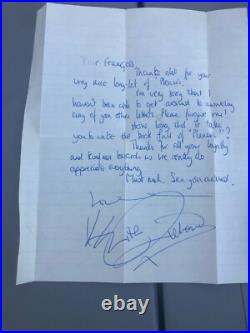 Dear François,
Thanks alot for your
very nice booklet of Pleasers.
I'm very sorry that I
haven't been able to get around to answering
any of you other letters. Please forgive me!
How long did it take
you to write the book full of "Please"!?
Thanks for all your loyalty
and kindness towards us we really do
appreciate everything.
Must rush. See you around.
Love